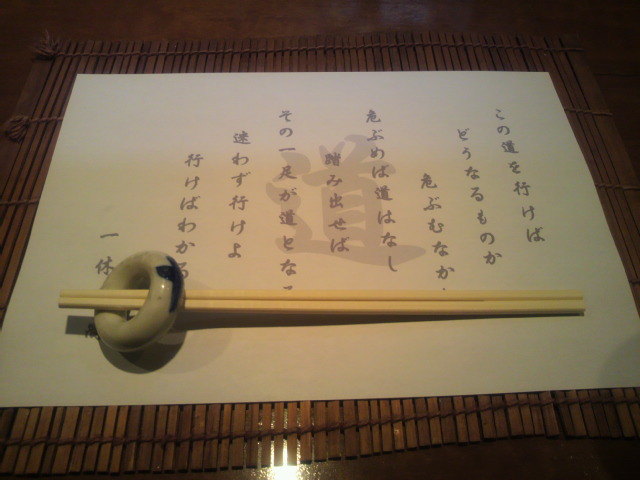 この道を行けば
どうなるものか
危ぶむなか
危ぶめば道はなし
踏み出せば
その一足が道とな
迷わず行けよ
行けばわかる
一休
道